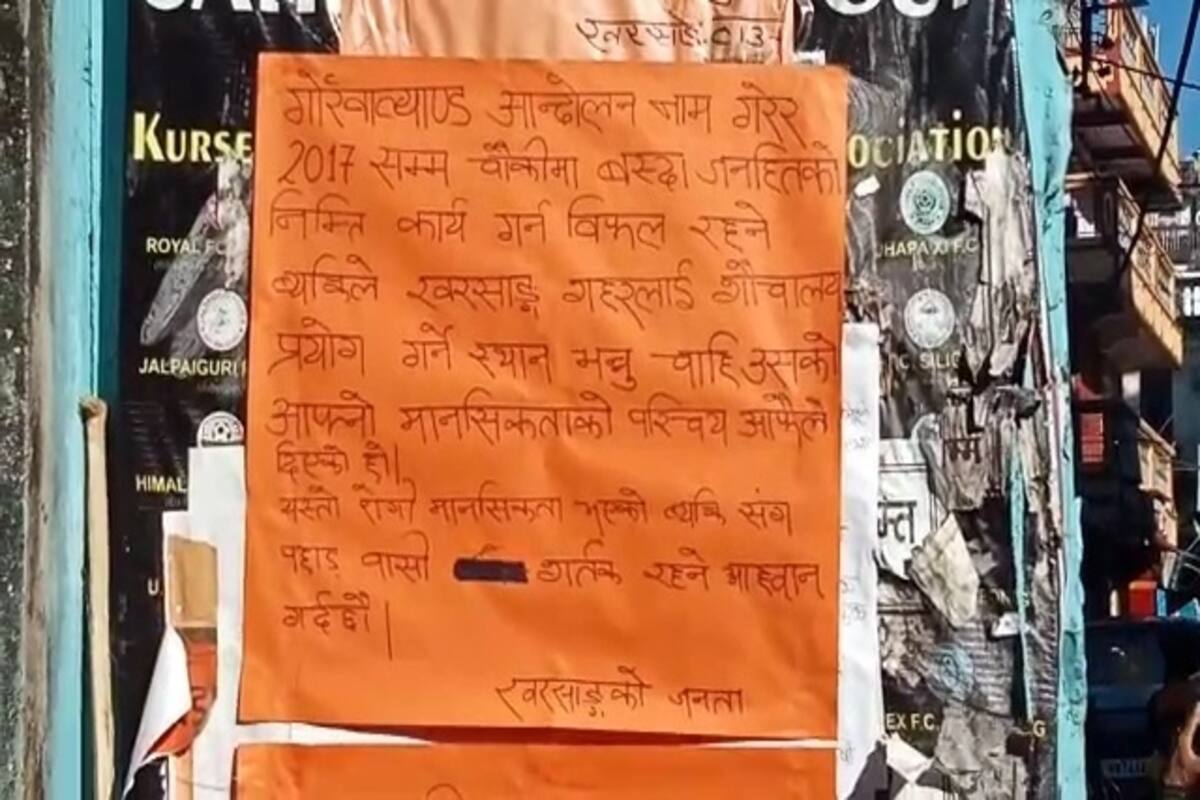 खरसाङ:
KURSE
OCIATION
ROYAL FC
HAPA XI F.C
JALPAIGURI
C. SILIG
HIMAL
U.
EX F.C.
G
गोर्खाल्याण्ड आन्दोलन नाम गरेर
2017 सम्म चौकीमा बस्दा जनहितको
निम्ति कार्य गर्न विफल रहने
व्यक्तिले खरसाङ्ग शहरलाई शौचालय
प्रयोग गर्ने स्थान भन्नु चाहि उसको
आफ्नो मानसिकताको परिचय आफैले
दिएको हो।
यस्तो रोगी मानसिकता भएको व्यक्ति संग
पहाड़ वासी शर्तक रहने आह्वान
गर्दछौ।
खरसाङ्गको जनता